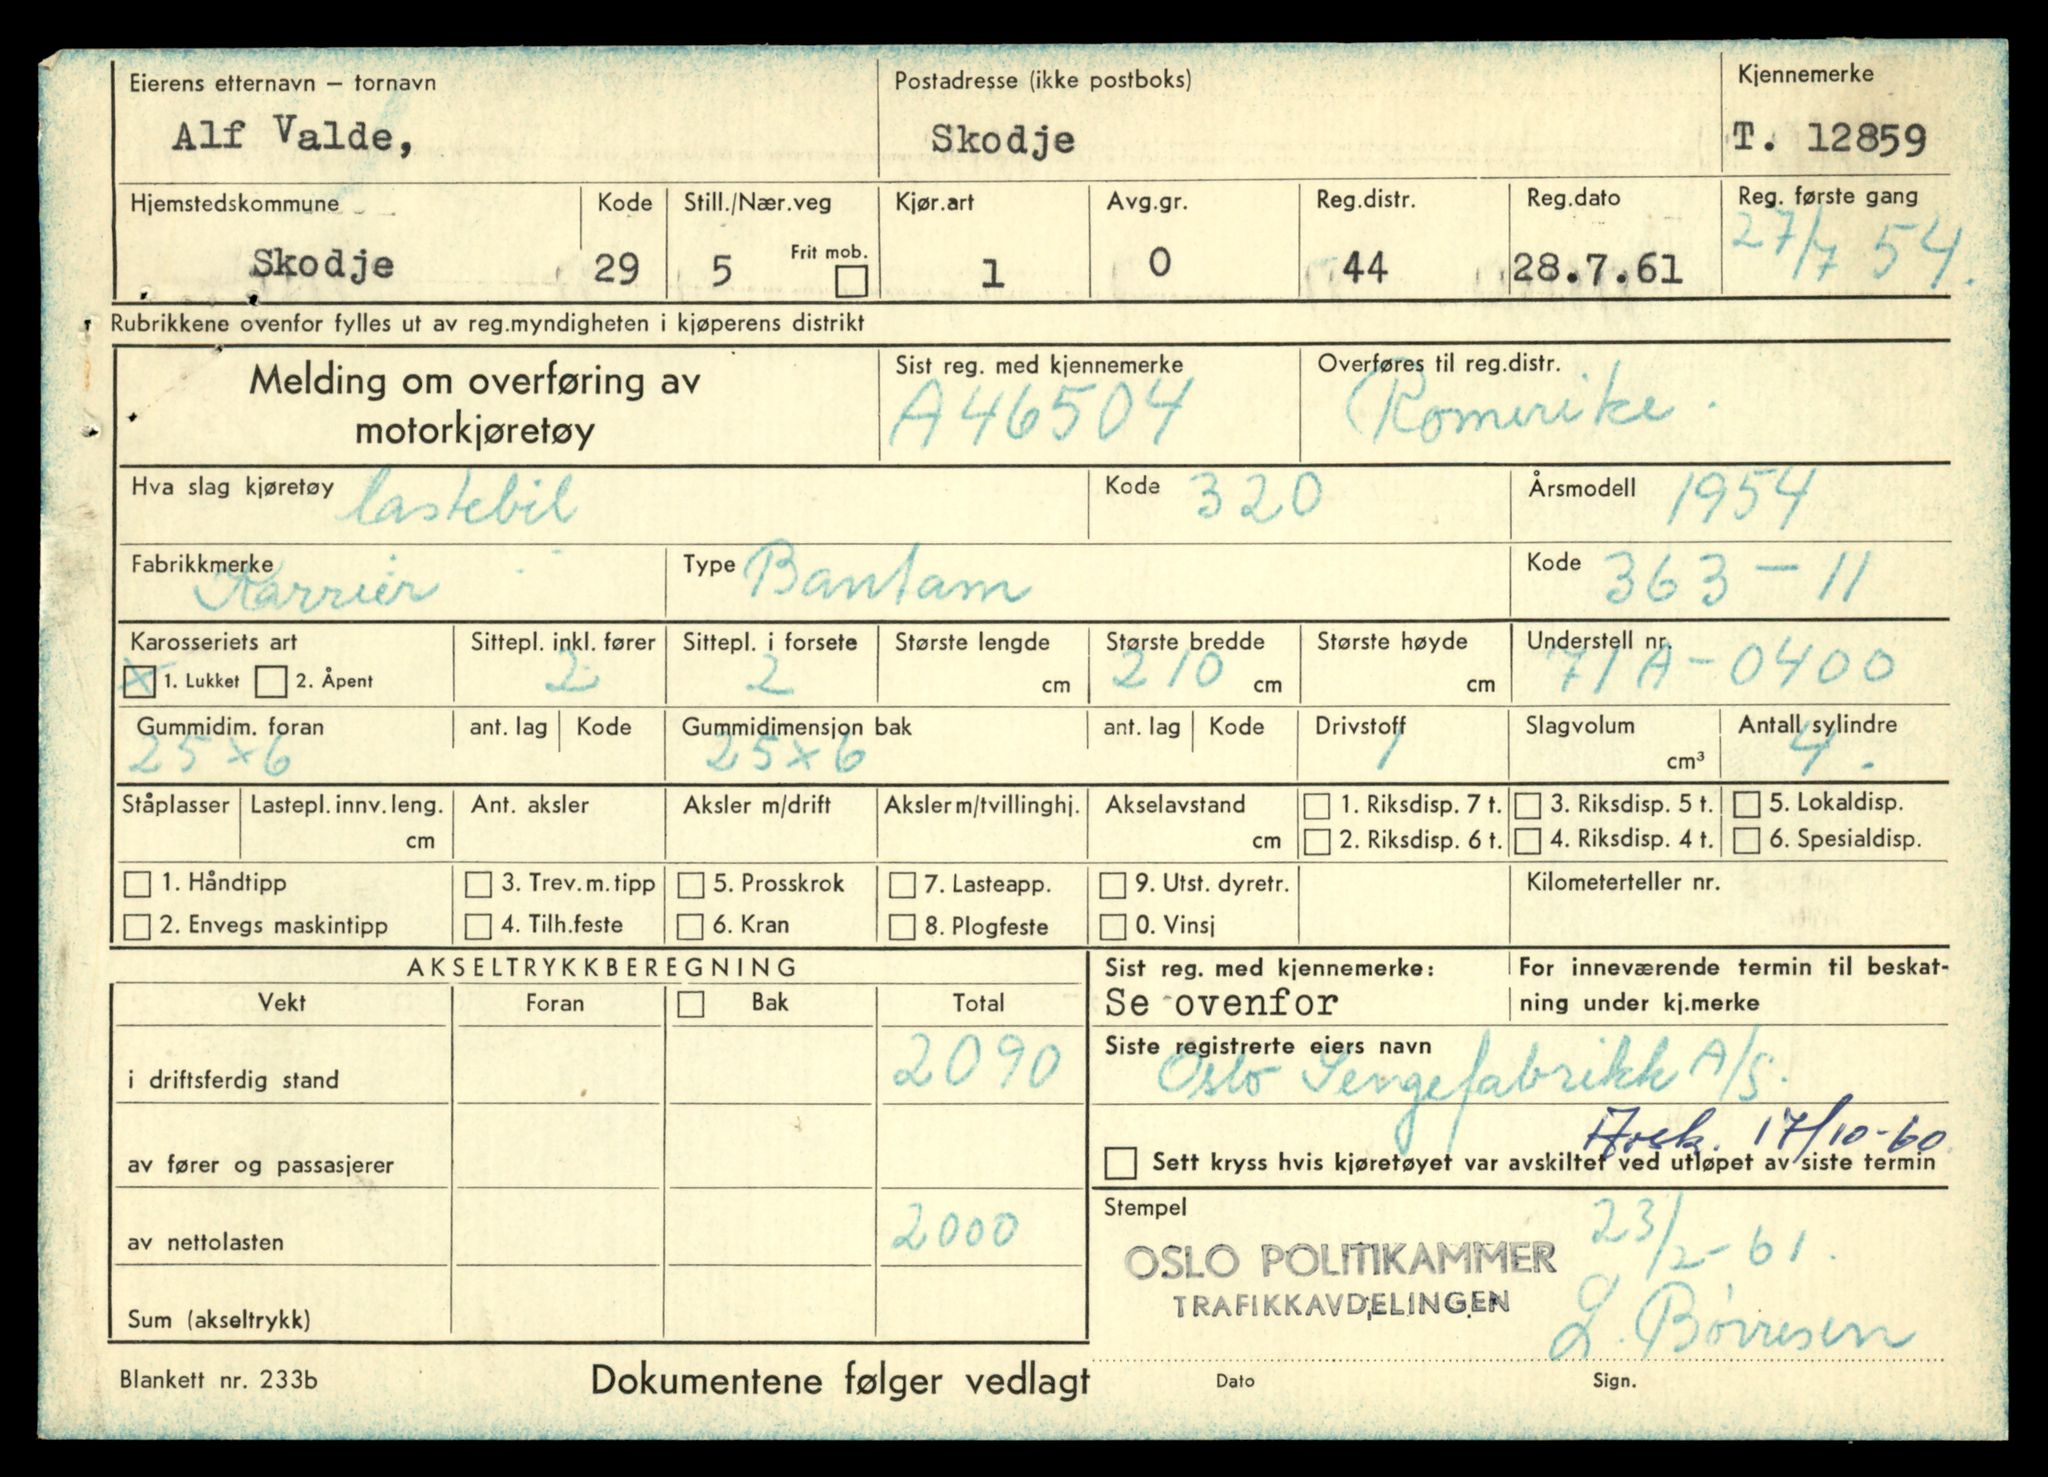 Eierens etternavn — tornavn Postadresse (ikke postboks) Kjennemerke
Alf Valde, Skodje T. 12859
Hjemstedskommune Kode Still./Nær.veg Kjør.art Avg.gr. Reg.distr. Reg.dato Reg. første gang
Skodje 29 5 Frit mob. 1 0 44 28.7.61 27/7 54.
Rubrikkene ovenfor fylles ut av reg.myndigheten i kjøperens distrikt
Melding om overføring av motorkjøretøy
Sist reg. med kjennemerke Overføres til reg.distr.
A46504 Romerike.
Hva slag kjøretøy lastebil Kode 320 Årsmodell 1954
Fabrikkmerke Karrier Type Bantam Kode 363-11
Karosseriets art Sittepl. inkl. fører Sittepl. i forsete Største lengde Største bredde Største høyde Understell nr.
X 1. Lukket 2. Åpent 2 2 cm 210 cm cm 71A-0400
Gummidim. foran ant. lag Kode Gummidimensjon bak ant. lag Kode Drivstoff Slagvolum Antall sylindre
25×6 25×6 1 cm³ 4.
Ståplasser Lastepl. innv. leng. Ant. aksler Aksler m/drift Aksler m/tvillinghj. Akselavstand 1. Riksdisp. 7 t. 3. Riksdisp. 5 t. 5. Lokaldisp.
cm cm 2. Riksdisp. 6 t. 4. Riksdisp. 4 t. 6. Spesialdisp.
1. Håndtipp 3. Trev. m. tipp 5. Prosskrok 7. Lasteapp. 9. Utst. dyretr. Kilometerteller nr.
2. Envegs maskintipp 4. Tilh.feste 6. Kran 8. Plogfeste 0. Vinsj
AKSELTRYKKBEREGNING
Vekt Foran Bak Total
i driftsferdig stand 2090
av fører og passasjerer
av nettolasten 2000
Sum (akseltrykk)
Sist reg. med kjennemerke: For inneværende termin til beskat-
Se ovenfor ning under kj.merke
Siste registrerte eiers navn
Oslo Sengefabrikk A/S.
Avsk. 17/10-60
Sett kryss hvis kjøretøyet var avskiltet ved utløpet av siste termin
Stempel 23/2-61.
OSLO POLITIKAMMER
TRAFIKKAVDELINGEN
L. Børresen
Blankett nr. 233b Dokumentene følger vedlagt Dato Sign.